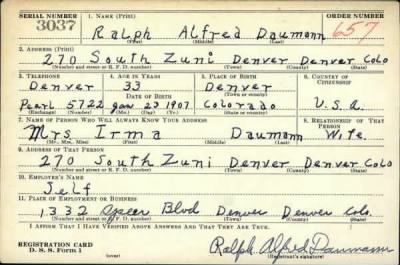 SERIAL NUMBER 1. NAME (Print) ORDER NUMBER
3037 Ralph Alfred Daumann 657
(First) (Middle) (Last)
2. ADDRESS (Print)
270 South Zuni Denver Denver Colo
(Number and street or R. F. D. number) (Town) (County) (State)
3. TELEPHONE 4. AGE IN YEARS 5. PLACE OF BIRTH 6. COUNTRY OF CITIZENSHIP
Denver 33 Denver
DATE OF BIRTH (Town or county)
Pearl 5722 Jan 23 1907 Colorado U.S.A.
(Exchange) (Number) (Mo.) (Day) (Yr.) (State or country)
7. NAME OF PERSON WHO WILL ALWAYS KNOW YOUR ADDRESS 8. RELATIONSHIP OF THAT PERSON
Mrs Irma Daumann Wife
(Mr., Mrs., Miss) (First) (Middle) (Last)
9. ADDRESS OF THAT PERSON
270 South Zuni Denver Denver Colo
(Number and street or R. F. D. number) (Town) (County) (State)
10. EMPLOYER'S NAME
Self
11. PLACE OF EMPLOYMENT OR BUSINESS
1332 Speer Blvd Denver Denver Colo.
(Number and street or R. F. D. number) (Town) (County) (State)
I AFFIRM THAT I HAVE VERIFIED ABOVE ANSWERS AND THAT THEY ARE TRUE.
REGISTRATION CARD
D. S. S. Form 1 Ralph Alfred Daumann
(Registrant's signature)